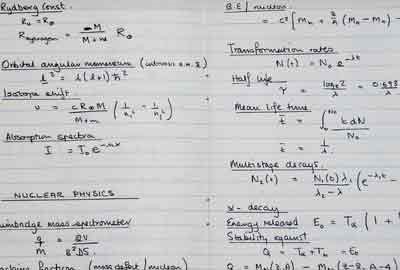 Rydberg Const.
R∞ = R∞
R hydrogen = M / M+m R∞
Orbital angular momentum
l² = l(l+1)ħ²
Isotope shift
υ = cR∞M / M+m (1/n₁² - 1/n₂²)
Absorption spectra
I = I₀e^-μx
NUCLEAR PHYSICS
mass spectrometer
q/M = 2V / B²DS
fraction (mass defect/nucleon)
B.E/nucleon
= c² [Mn + Z/A (MH - Mn) -
Transformation rates
N(t) = N₀ e^-λt
Half life
τ = loge2 / λ = 0.693 / λ
Mean life time
t̄ = ∫₀^N₀ t dN / N₀
t̄ = 1/λ
Multistage decays.
N₂(t) = N₁(0)λ₁ / λ₂-λ (e^-λ₁t -
α-decay
Energy released E₀ = Tα (1 +
Stability against
Q = Tα + Th = E₀
Q = MN(Z,A) - MN(Z-2, A-4)